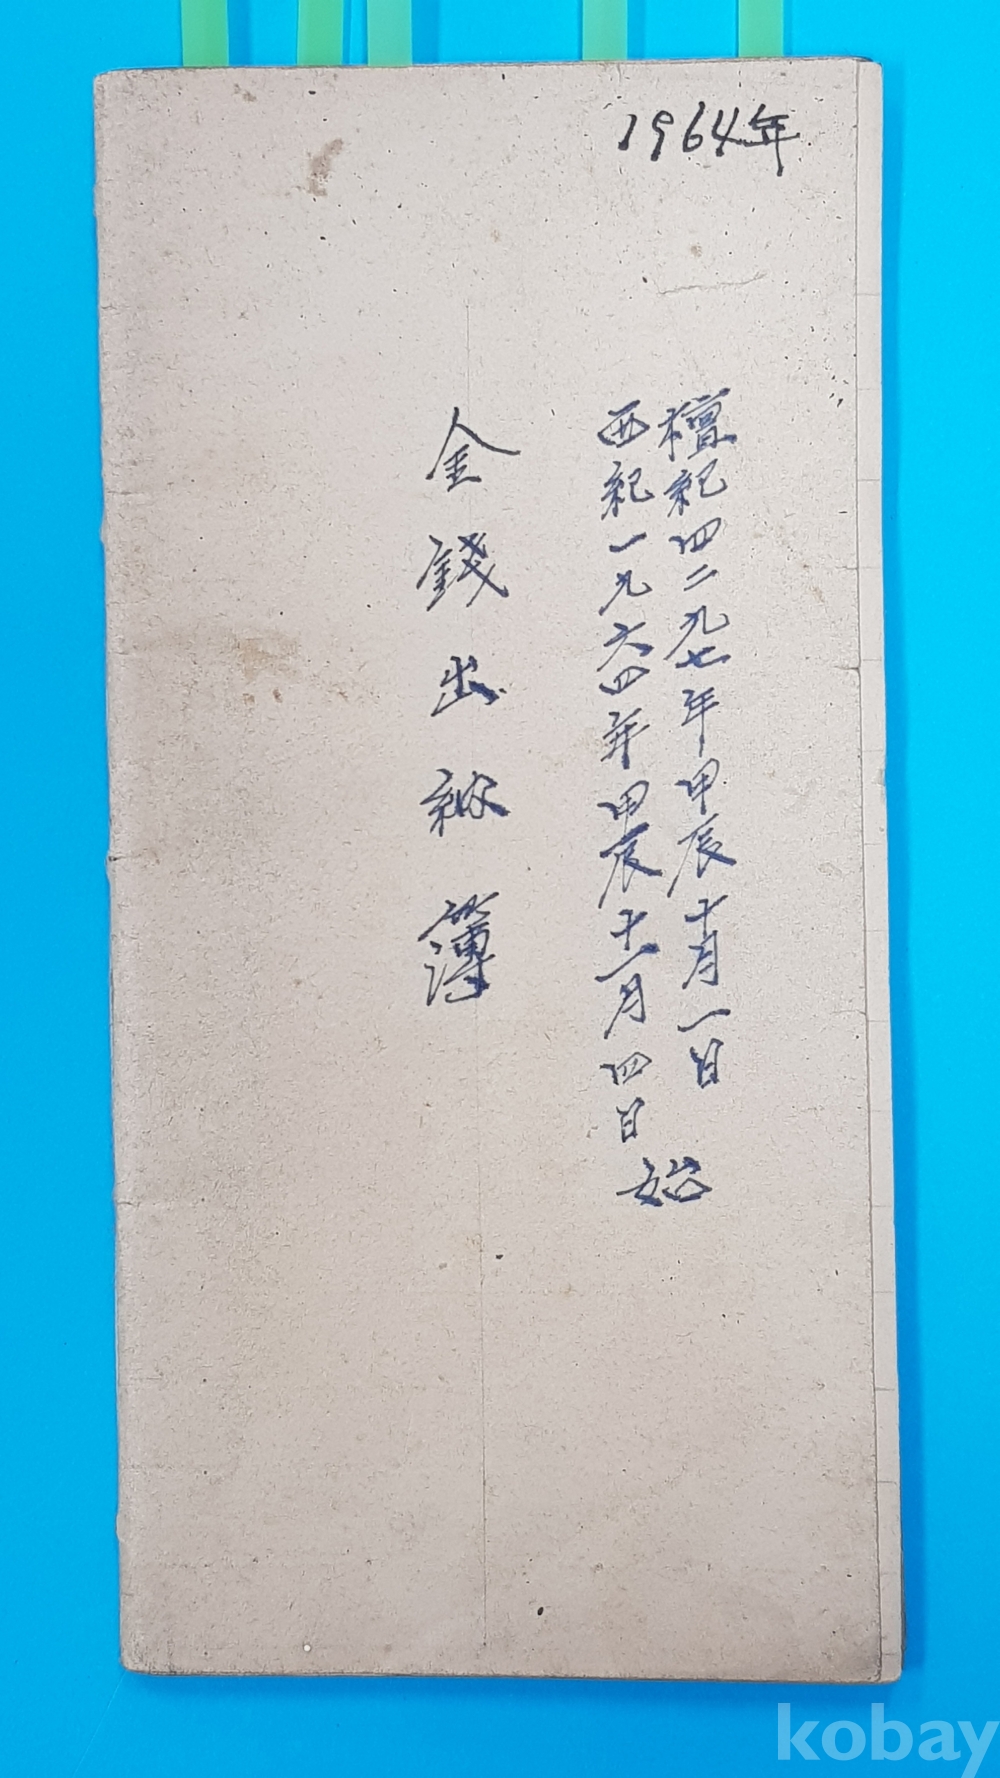 1964年
檀紀四二九七年甲辰十月一日
西紀一九六四年甲辰十一月四日
始
金錢出納簿
kobay